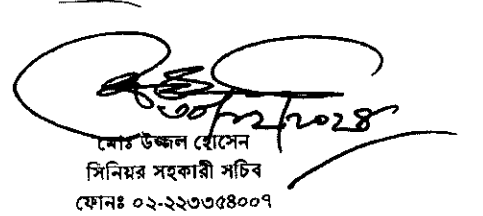 ৩০/১২/২০২৪
মোঃ উজ্জল হোসেন
সিনিয়র সহকারী সচিব
ফোনঃ ০২-২২৩৩৫৪০০৭